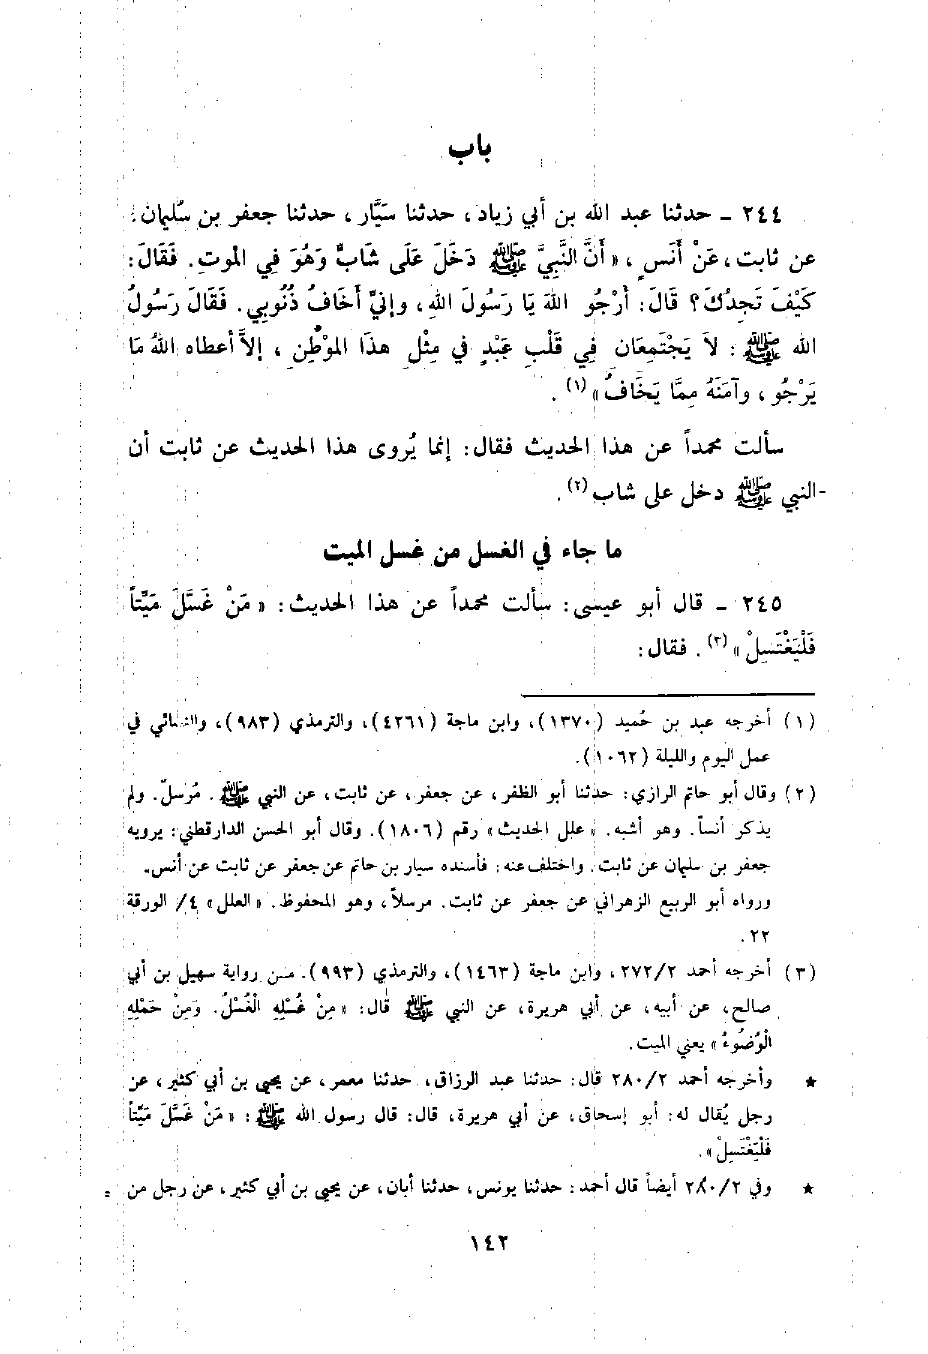 باب
٢٤٤ - حدثنا عبد الله بن أبي زياد، حدثنا سَيَّار، حدثنا جعفر بن سُليمان.
عن ثابت، عَنْ أَنَسٍ، « أَنَّ النَّبِيَّ ﷺ دَخَلَ عَلَى شَابٌّ وَهُوَ فِي الموتِ. فَقَالَ:
كَيْفَ تَجِدُكَ؟ قَالَ: أَرْجُو اللهَ يَا رَسُولَ اللهِ، وإنيّ أَخَافُ ذُنُوبِي. فَقَالَ رَسُولُ
الله ﷺ : لاَ يَجْتَمِعَانِ فِي قَلْبِ عَبْدٍ في مِثْلِ هذَا الموْطِنِ ، إلاَّ أعطاه اللهُ مَا
يَرْجُو ، وآمَنَهُ مِمَّا يَخَافُ » (١) .
سألت محمداً عن هذا الحديث فقال: إنما يُروى هذا الحديث عن ثابت أن
النبي ﷺ دخل على شاب (٢) .
ما جاء في الغسل من غسل الميت
٢٤٥ - قال أبو عيسى: سألت محمداً عن هذا الحديث: « مَنْ غَسَّلَ مَيِّتاً
فَلْيَغْتَسِلْ » (٣) . فقال:
(١) أخرجه عبد بن حُميد (١٣٧٠)، وابن ماجة (٤٢٦١)، والترمذي (٩٨٣)، والنسائي في
عمل اليوم والليلة (١٠٦٢).
(٢) وقال أبو حاتم الرازي: حدثنا أبو الظفر، عن جعفر، عن ثابت، عن النبي ﷺ . مُرسلٌ. ولم
يذكر أنساً. وهو أشبه. « علل الحديث » رقم (١٨٠٦). وقال أبو الحسن الدارقطني: يرويه
جعفر بن سليمان عن ثابت. واختلف عنه: فأسنده سيار بن حاتم عن جعفر عن ثابت عن أنس.
ورواه أبو الربيع الزهراني عن جعفر عن ثابت. مرسلاً، وهو المحفوظ. « العلل » ٤/ الورقة
٢٢.
(٣) أخرجه أحمد ٢٧٢/٢، وابن ماجة (١٤٦٣)، والترمذي (٩٩٣). من رواية سهيل بن أبي
صالح، عن أبيه، عن أبي هريرة، عن النبي ﷺ قال: « مِنْ غُسْلِهِ الْغُسْلُ. وَمِنْ حَمْلِهِ
الْوُضُوءُ » يعني الميت.
★ وأخرجه أحمد ٢٨٠/٢ قال: حدثنا عبد الرزاق، حدثنا معمر، عن يحيى بن أبي كثير، عن
رجل يُقال له: أبو إسحاق، عن أبي هريرة، قال: قال رسول الله ﷺ : « مَنْ غَسَّلَ مَيِّتاً
فَلْيَغْتَسِلْ ».
★ وفي ٢٨٠/٢ أيضاً قال أحمد: حدثنا يونس، حدثنا أبان، عن يحيى بن أبي كثير، عن رجل من =
١٤٢